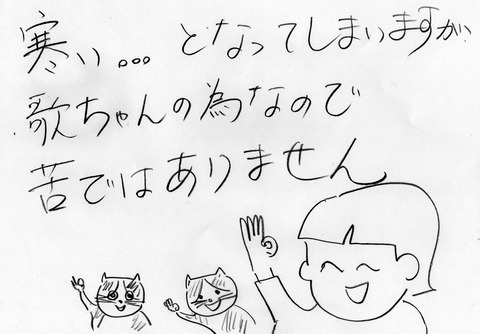 寒い。。。となってしまいますが
歌ちゃんの為なので
苦ではありません